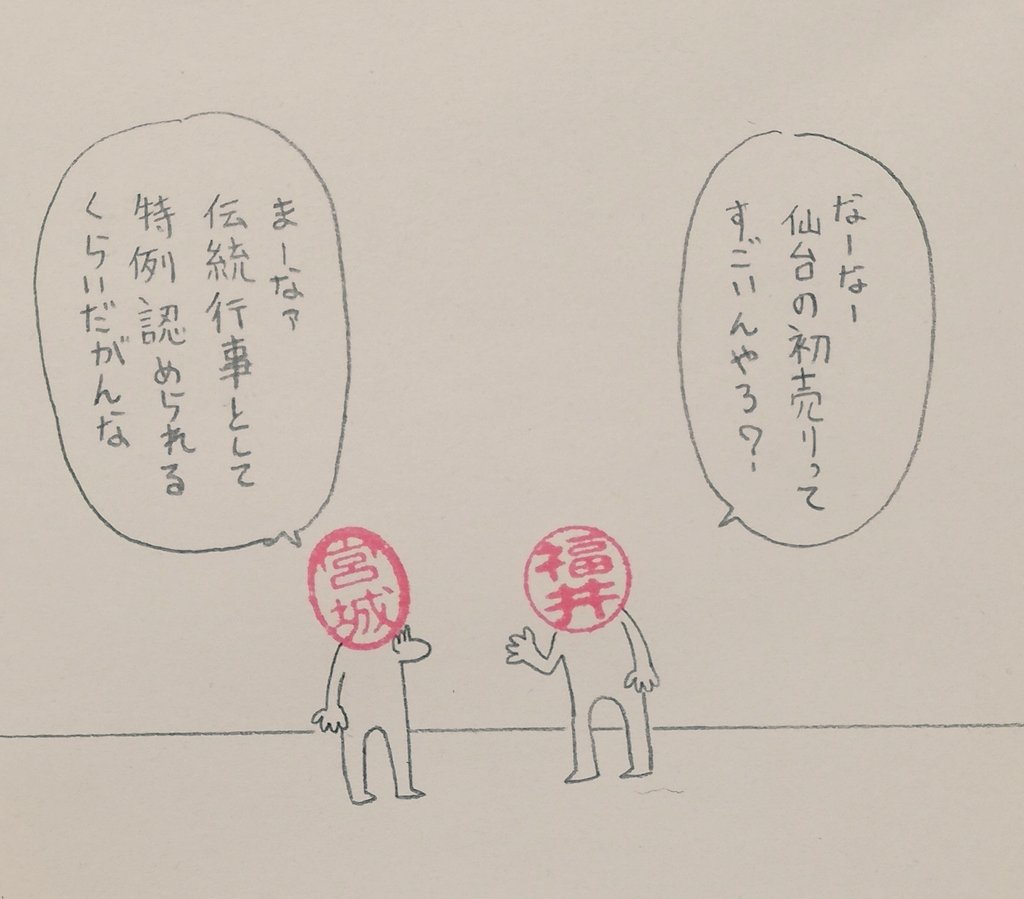 なーなー
仙台の初売りって
すごいんやろ?
まーなァ
伝統行事として
特例認められる
くらいだがんな
福井
宮城